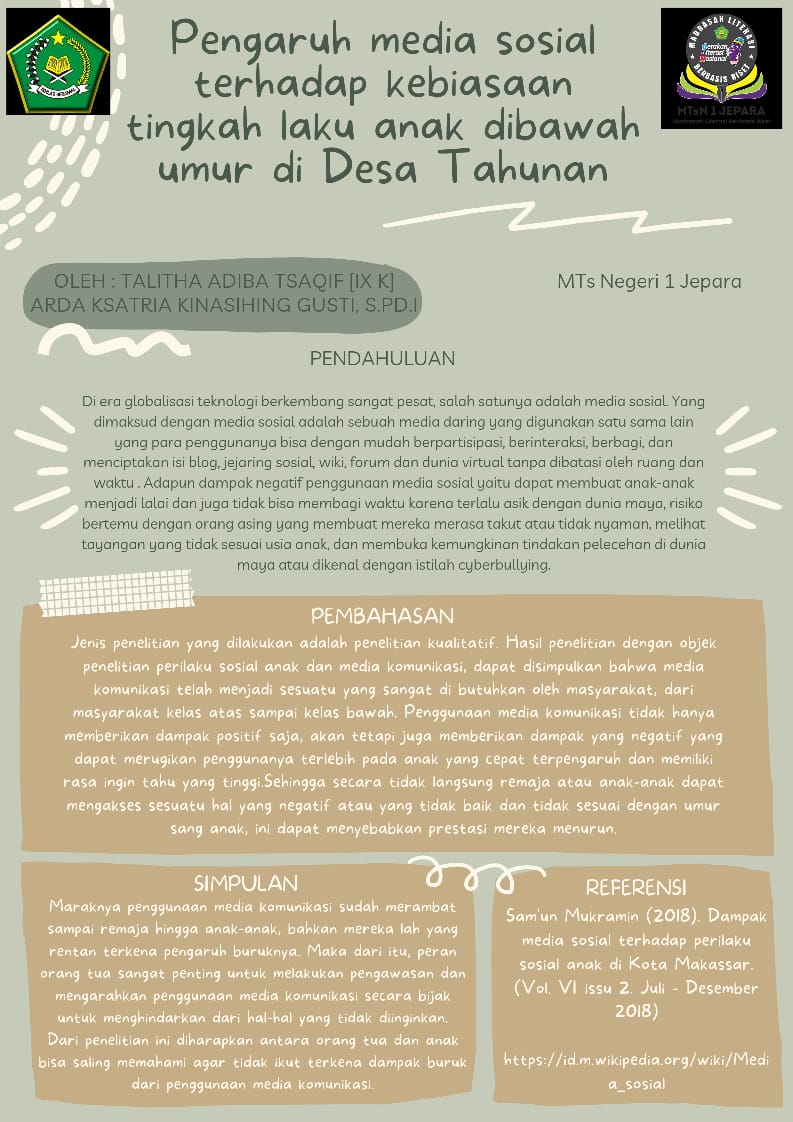 Pengaruh media sosial
terhadap kebiasaan
tingkah laku anak dibawah
umur di Desa Tahunan
MADRASAH LITERASI
Gerakan
Literasi
Nasional
BERBASIS RISET
MTsN 1 JEPARA
Madrasah Literasi Berbasis Riset
OLEH : TALITHA ADIBA TSAQIF [IX K]
ARDA KSATRIA KINASIHING GUSTI, S.PD.I
MTs Negeri 1 Jepara
PENDAHULUAN
Di era globalisasi teknologi berkembang sangat pesat, salah satunya adalah media sosial. Yang
dimaksud dengan media sosial adalah sebuah media daring yang digunakan satu sama lain
yang para penggunanya bisa dengan mudah berpartisipasi, berinteraksi, berbagi, dan
menciptakan isi blog, jejaring sosial, wiki, forum dan dunia virtual tanpa dibatasi oleh ruang dan
waktu . Adapun dampak negatif penggunaan media sosial yaitu dapat membuat anak-anak
menjadi lalai dan juga tidak bisa membagi waktu karena terlalu asik dengan dunia maya, risiko
bertemu dengan orang asing yang membuat mereka merasa takut atau tidak nyaman, melihat
tayangan yang tidak sesuai usia anak, dan membuka kemungkinan tindakan pelecehan di dunia
maya atau dikenal dengan istilah cyberbullying.
PEMBAHASAN
Jenis penelitian yang dilakukan adalah penelitian kualitatif. Hasil penelitian dengan objek
penelitian perilaku sosial anak dan media komunikasi, dapat disimpulkan bahwa media
komunikasi telah menjadi sesuatu yang sangat di butuhkan oleh masyarakat, dari
masyarakat kelas atas sampai kelas bawah. Penggunaan media komunikasi tidak hanya
memberikan dampak positif saja, akan tetapi juga memberikan dampak yang negatif yang
dapat merugikan penggunanya terlebih pada anak yang cepat terpengaruh dan memiliki
rasa ingin tahu yang tinggi.Sehingga secara tidak langsung remaja atau anak-anak dapat
mengakses sesuatu hal yang negatif atau yang tidak baik dan tidak sesuai dengan umur
sang anak, ini dapat menyebabkan prestasi mereka menurun.
SIMPULAN
Maraknya penggunaan media komunikasi sudah merambat
sampai remaja hingga anak-anak, bahkan mereka lah yang
rentan terkena pengaruh buruknya. Maka dari itu, peran
orang tua sangat penting untuk melakukan pengawasan dan
mengarahkan penggunaan media komunikasi secara bijak
untuk menghindarkan dari hal-hal yang tidak diinginkan.
Dari penelitian ini diharapkan antara orang tua dan anak
bisa saling memahami agar tidak ikut terkena dampak buruk
dari penggunaan media komunikasi.
REFERENSI
Sam'un Mukramin (2018). Dampak
media sosial terhadap perilaku
sosial anak di Kota Makassar.
(Vol. VI issu 2. Juli - Desember
2018)
https://id.m.wikipedia.org/wiki/Medi
a_sosial